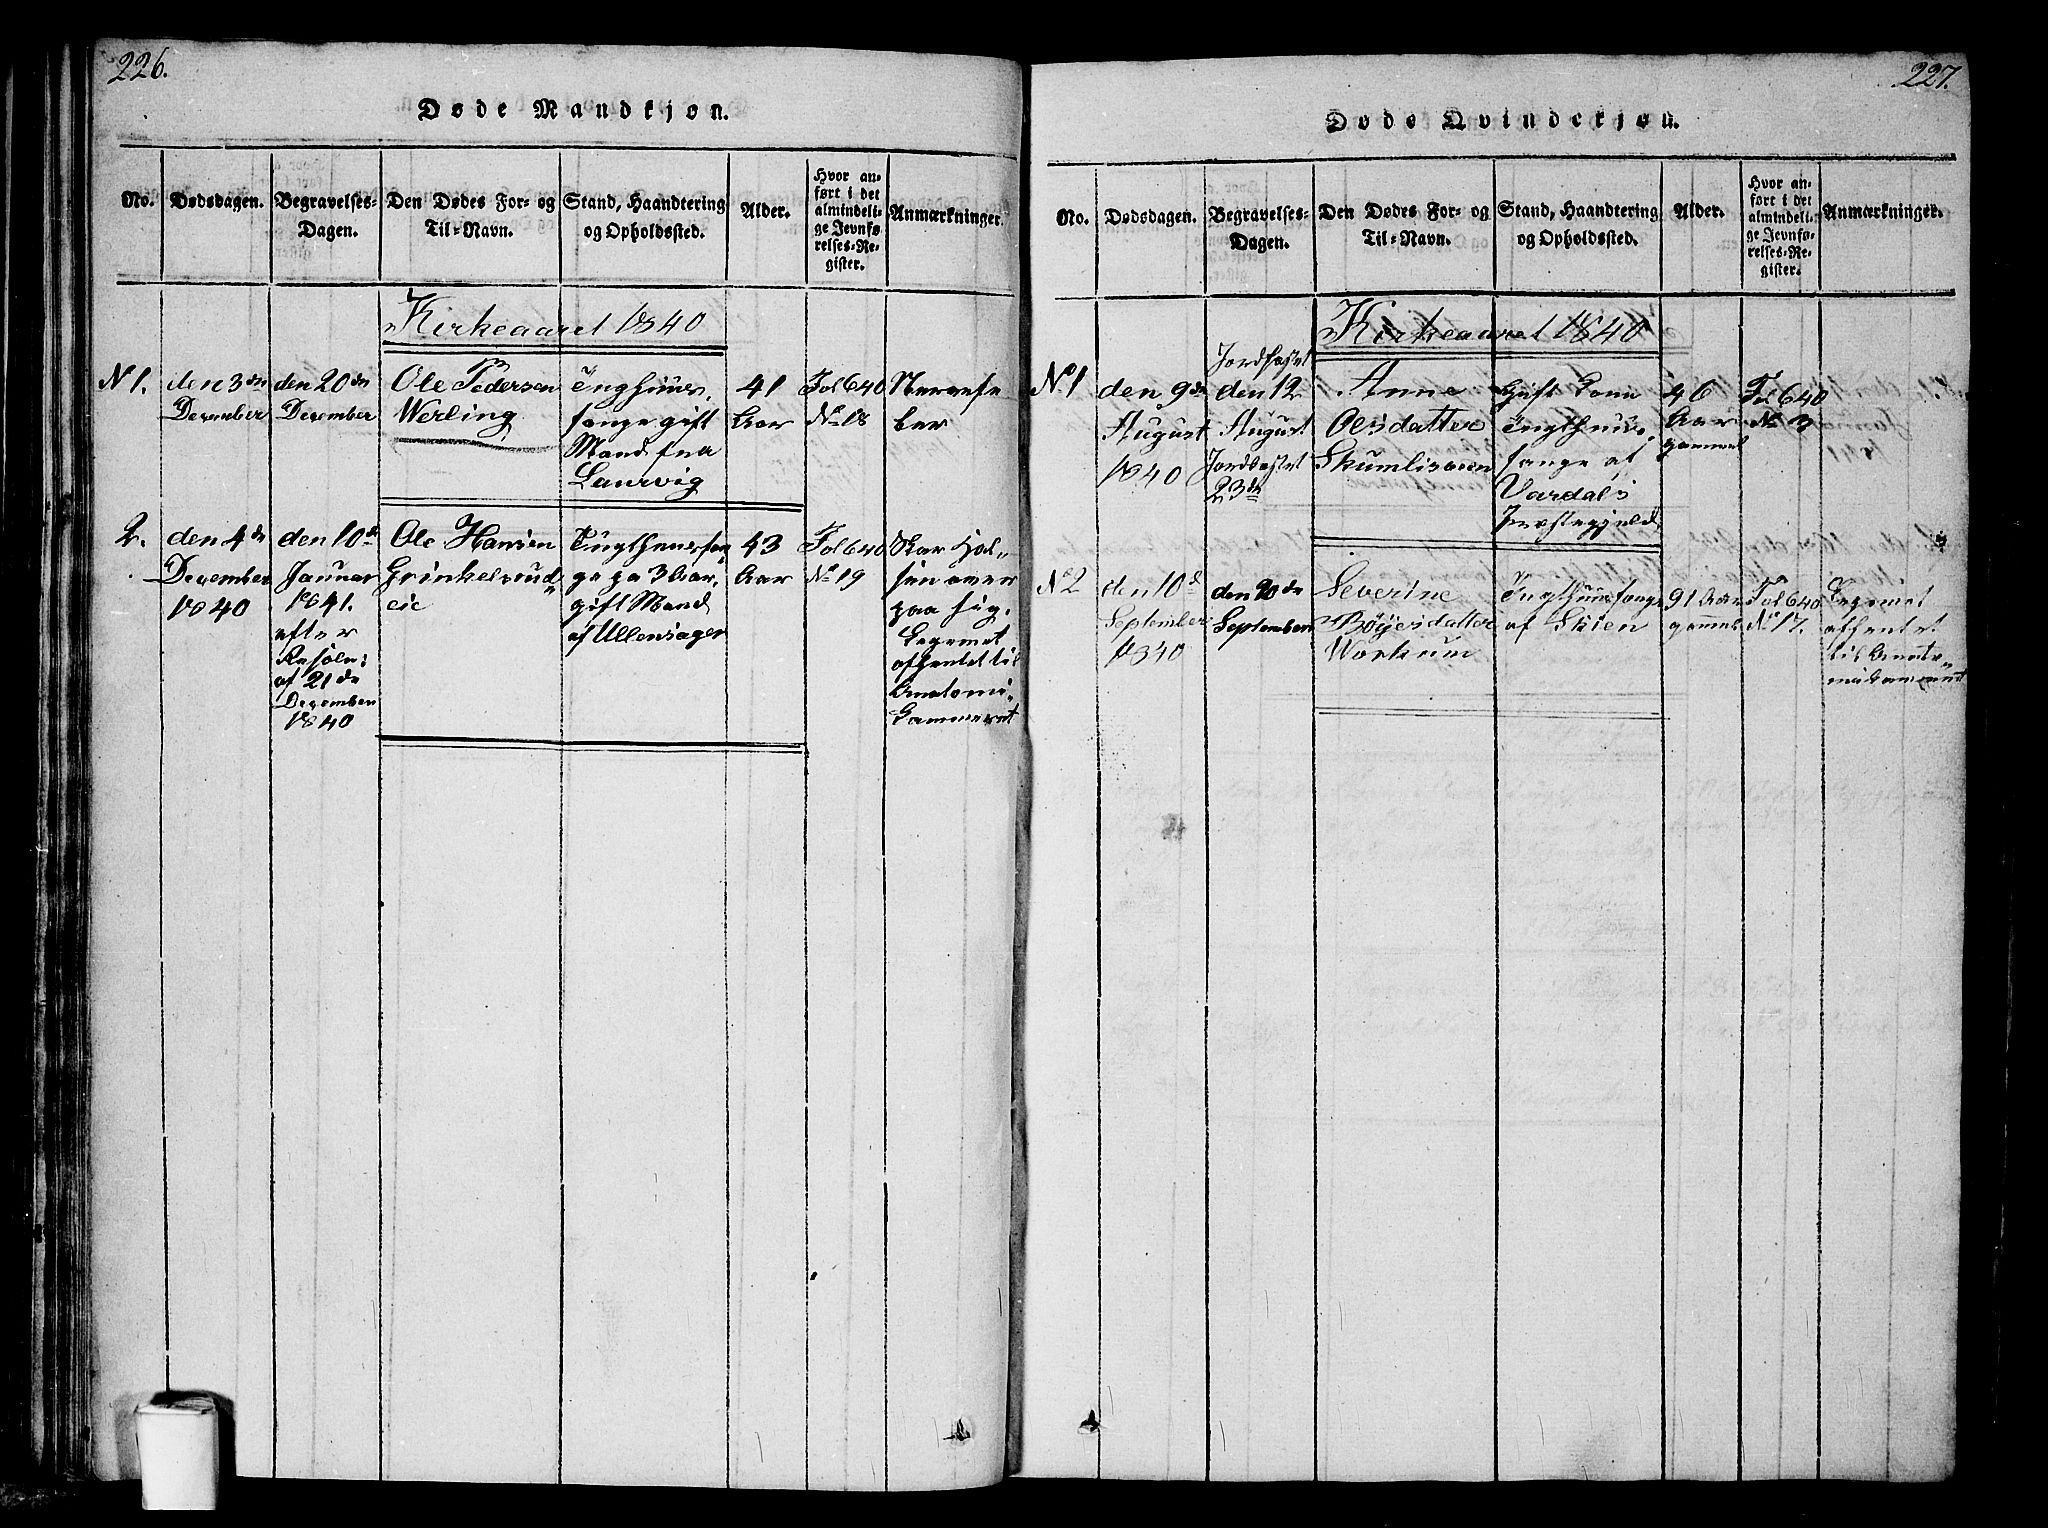 226.
Døde Mandkjøn.
No.
Dødsdagen.
Begravelses-
Dagen.
Den Dødes For- og
Til-Navn.
Stand, Haandtering
og Opholdssted.
Alder.
Hvor an-
ført i det
almindeli-
ge Jevnfø-
relses-Re-
gister.
Anmærkninger.
Kirkeaaret 1840
N 1.
den 3de
December
den 20de
December
Ole Pedersen
Werling
Tugthuus,
fange gift
Mand fra
Laurvig
41
Aar
Fol 640
No 18
Nervefe
ber
2.
den 4de
December
1840
den 10de
Januar
1841.
efter
Resolu:
af 21de
December
1840
Ole Hansen
Grinkelsrud
eie
Tugthuusfan
ge pa 3 Aar,
gift Mand
af Ullensager
43
Aar
Fol 640
No 19
Skar Hal-
sen over
paa sig.
Legemet
afhentet til
Anatomi-
kammeret
227.
Døde Qvindekjøn.
No.
Dødsdagen.
Begravelses-
Dagen.
Den Dødes For- og
Til-Navn.
Stand, Haandtering
og Opholdssted.
Alder.
Hvor an-
ført i det
almindeli-
ge Jevnfø-
relses-Re-
gister.
Anmærkninger.
Kirkeaaret 1840
No 1
den 9de
August
1840
Jordfæstet
den 12
August
Jordfæstet
23de
Anne
Olsdatter
Gift Kone
Tugthuus,
fange af
Vardals
Præstegjeld
46
Aar
gammel
Fol 640
No 3
No 2
den 10de
September
1840
den 20de
September
Severine
Böyesdatter
Workum
Tugthuusfange
af Skien
91 Aar
gammel
Fol 640
No 17.
Legemet
afhentet
til Anato-